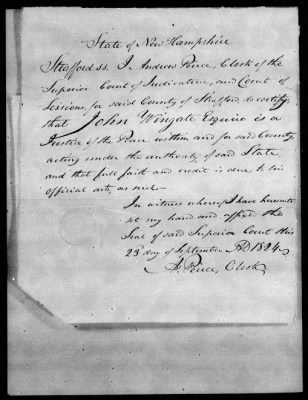 State of New Hampshire
Strafford ss. I Andrew Peirce, Clerk of the
Superior Court of Judicature, and Court of
Sessions, for said County of Strafford, do certify,
that John Wingate Esquire is a
Justice of the Peace within and for said County,
acting under the authority of said State,
and that full faith and credit is due to his
official acts, as such.
In witness whereof I have hereunto
set my hand and affixed the
Seal of said Superior Court this
23d day of September AD 1824.
A. Peirce, Clerk